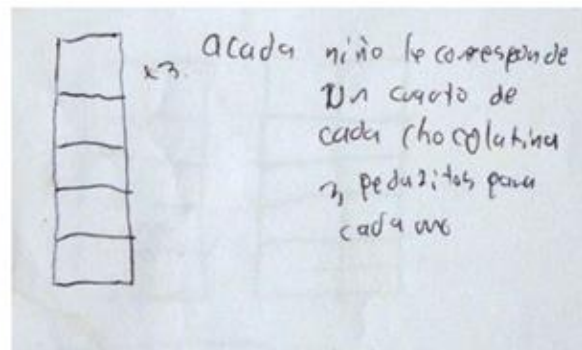 x3.
acada niño le corresponde
un cuarto de
cada chocolatina
3 pedasitos para
cada uno